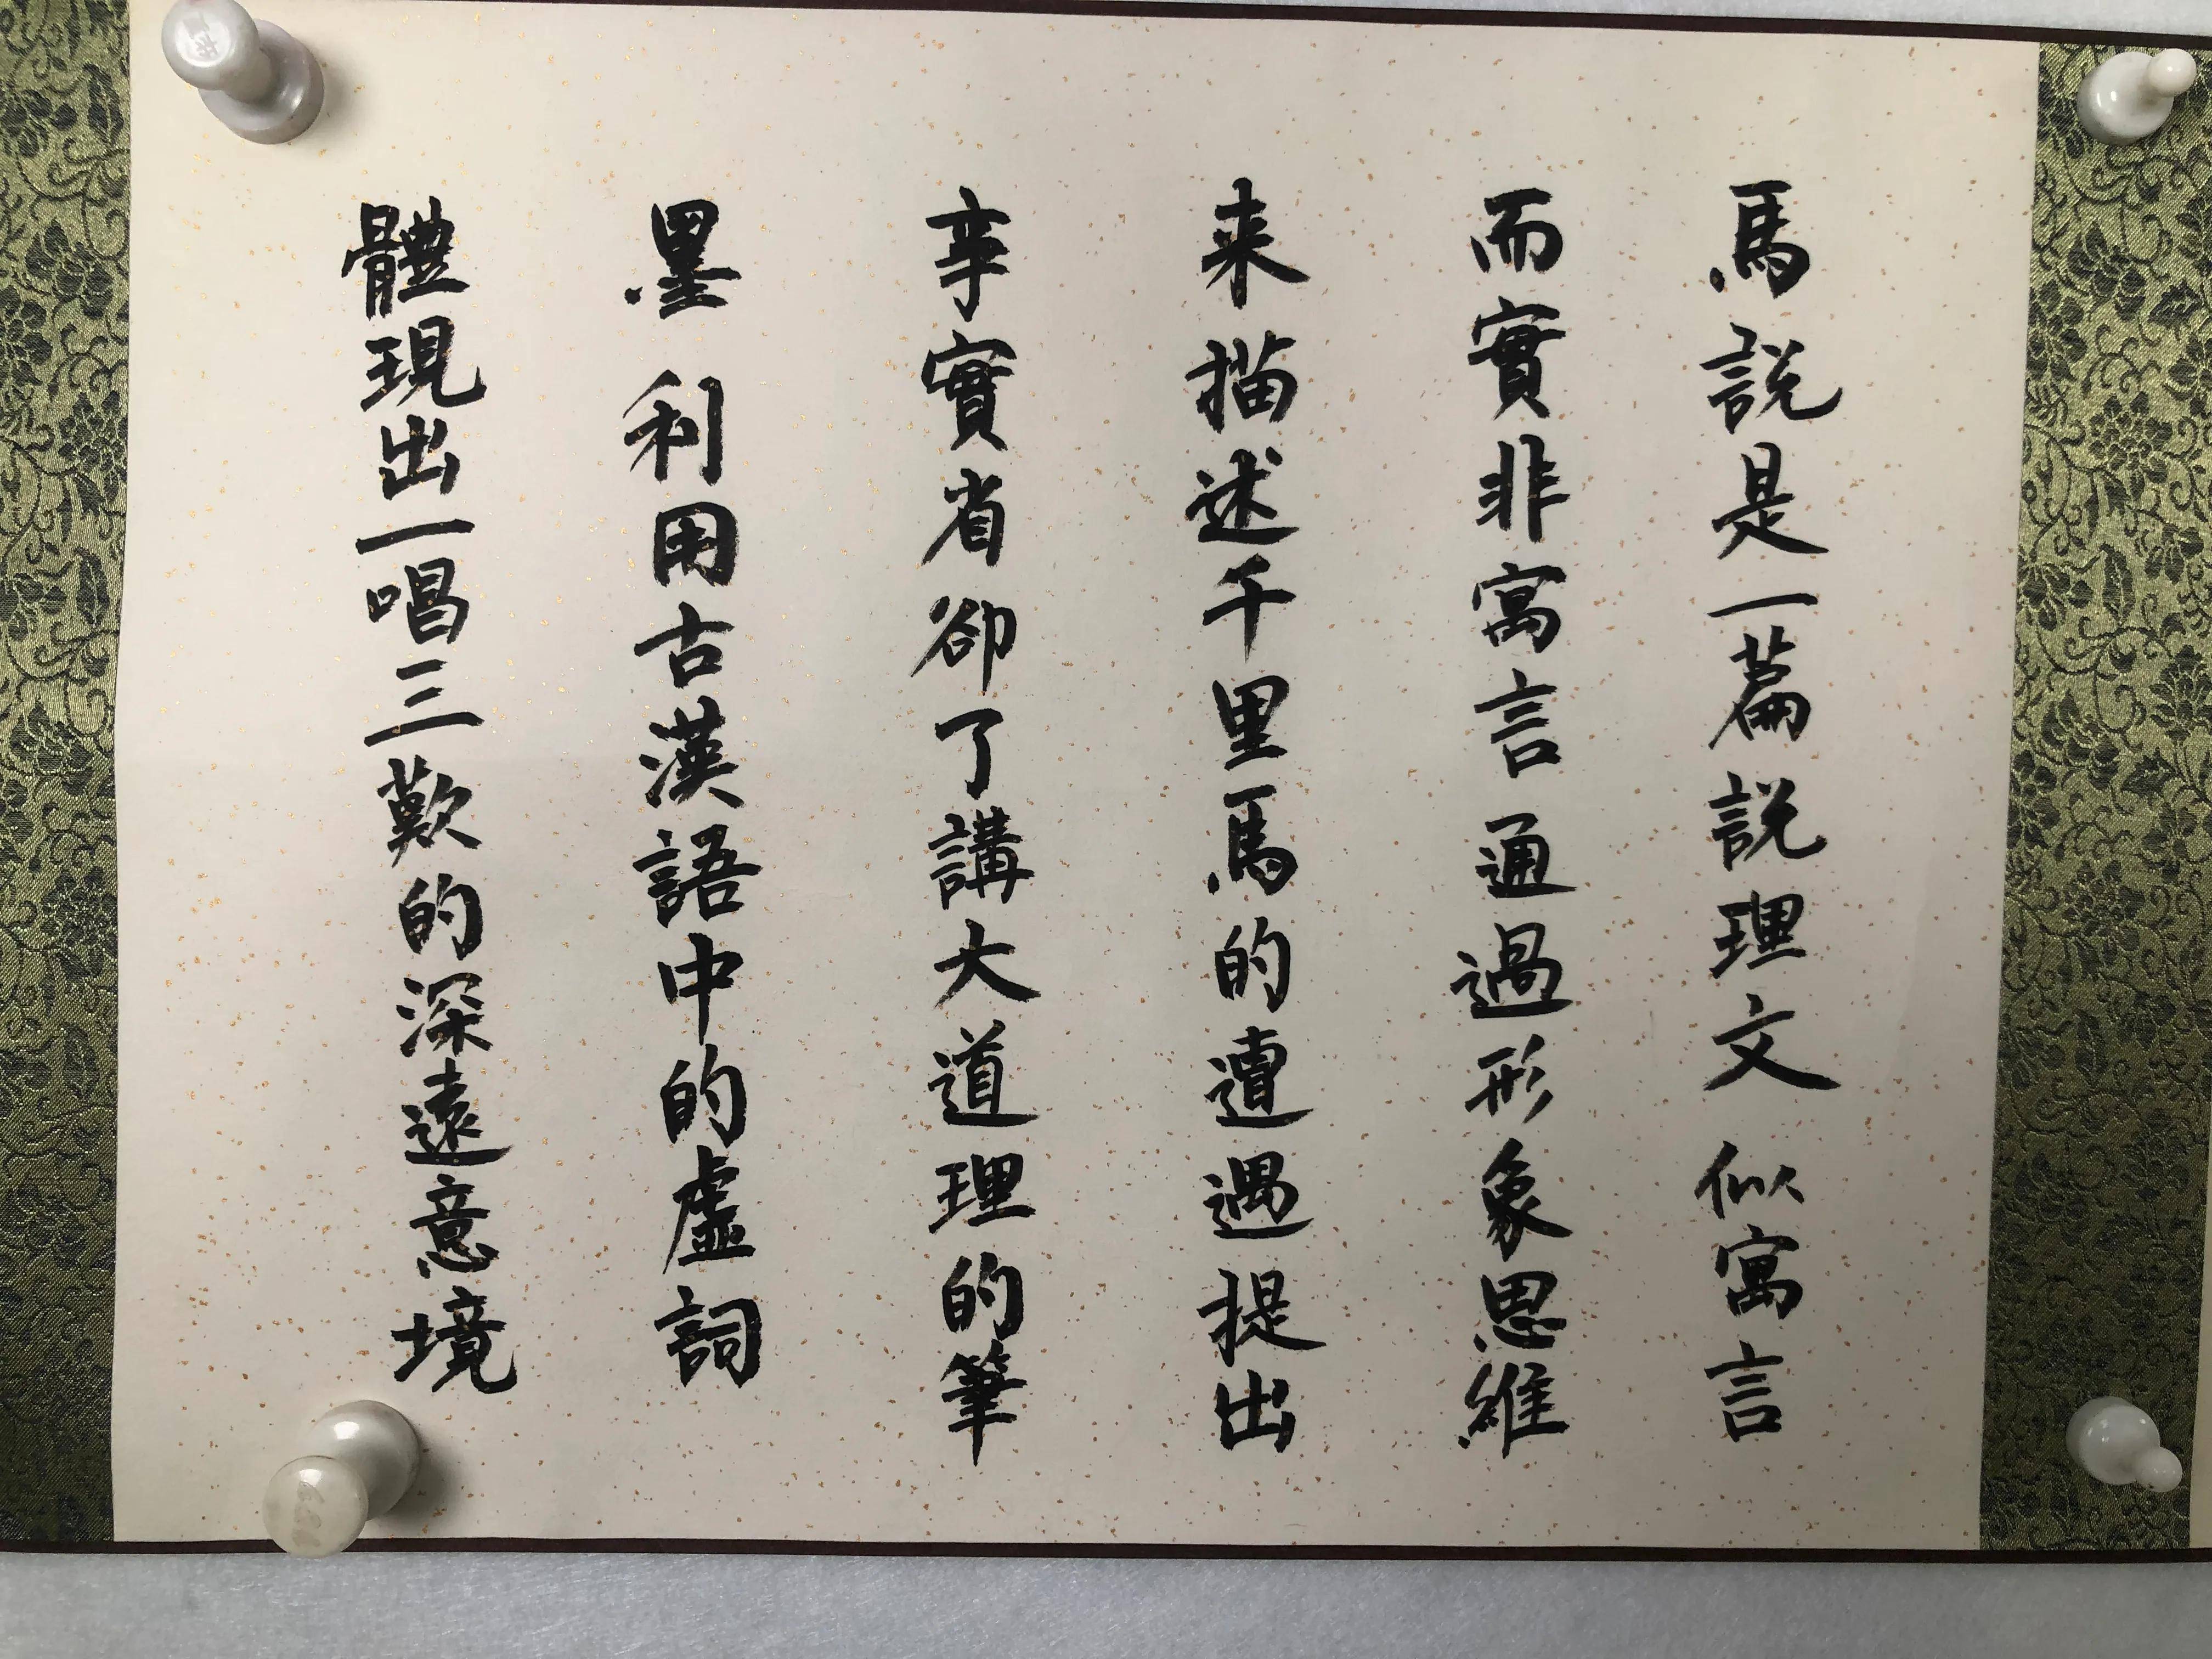 馬説是一篇説理文 似寓言
而實非寓言 通過形象思維
来描述千里馬的遭遇提出
事實省卻了講大道理的筆
墨 利用古漢語中的虛詞
體現出一唱三歎的深遠意境